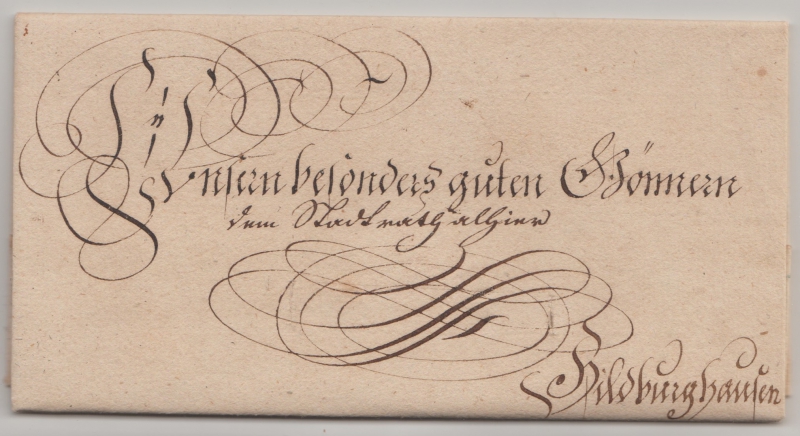 Unsern besonders guten Gönnern
dem Stadtrath alhier
Hildburghausen